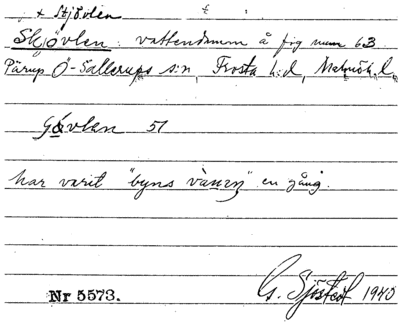 + Stjövlen
Skjövlen : vattendamm å fig num 63
Pärup Ö-Sallerups s:n, Frosta h:d, Malmöh. l.
Gövlen 51
har varit "byns vàning" en gång.
G. Sjöstedt 1940
Nr 5573.